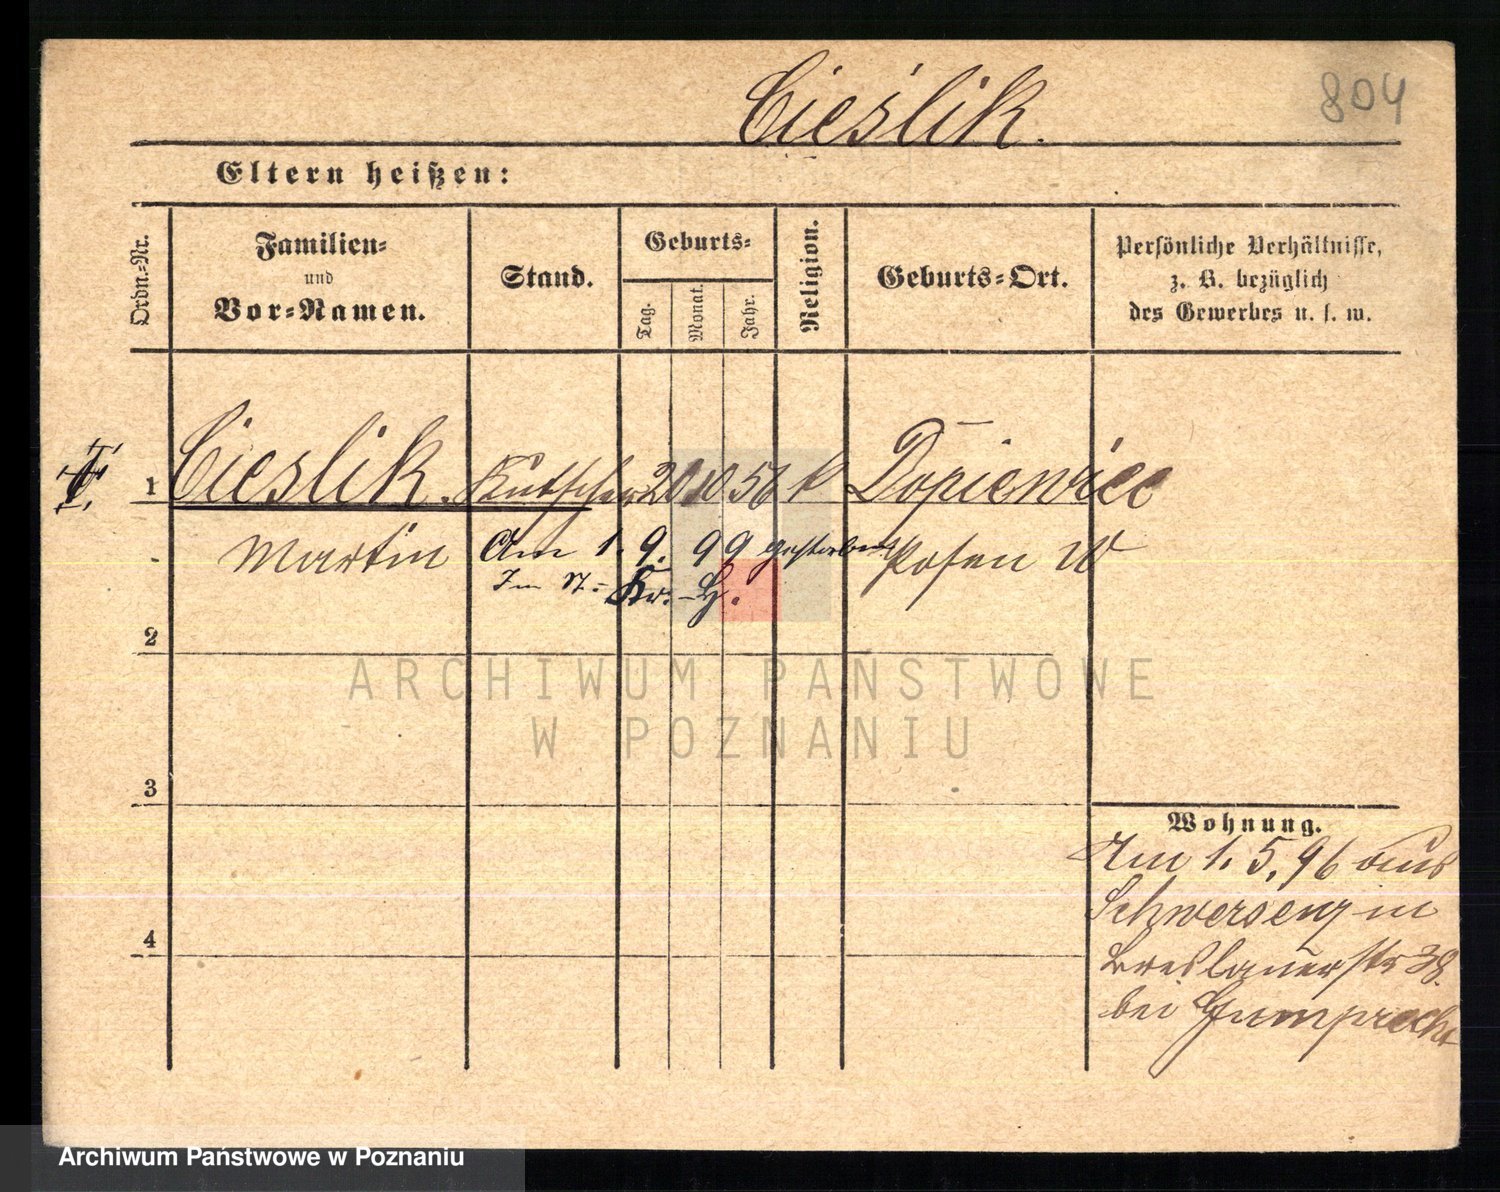 Cieślik.
804
Eltern heißen:
Ordn.-Nr.
Familien-
und
Vor-Namen.
Stand.
Geburts-
Tag.
Monat.
Jahr.
Religion.
Geburts-Ort.
Persönliche Verhältnisse,
z. B. bezüglich
des Gewerbes u. s. w.
1 Cieslik. Kutscher 56 k Dopiewiec
Martin Am 1. 9. 99 gestorben Posen W
Im St.- Kr.-H.
2
ARCHIWUM PAŃSTWOWE
W POZNANIU
3
Wohnung.
Am 1. 5. 96 aus
Schwersenz in
Breslauerstr 38.
bei Gumprecht
4
Archiwum Państwowe w Poznaniu